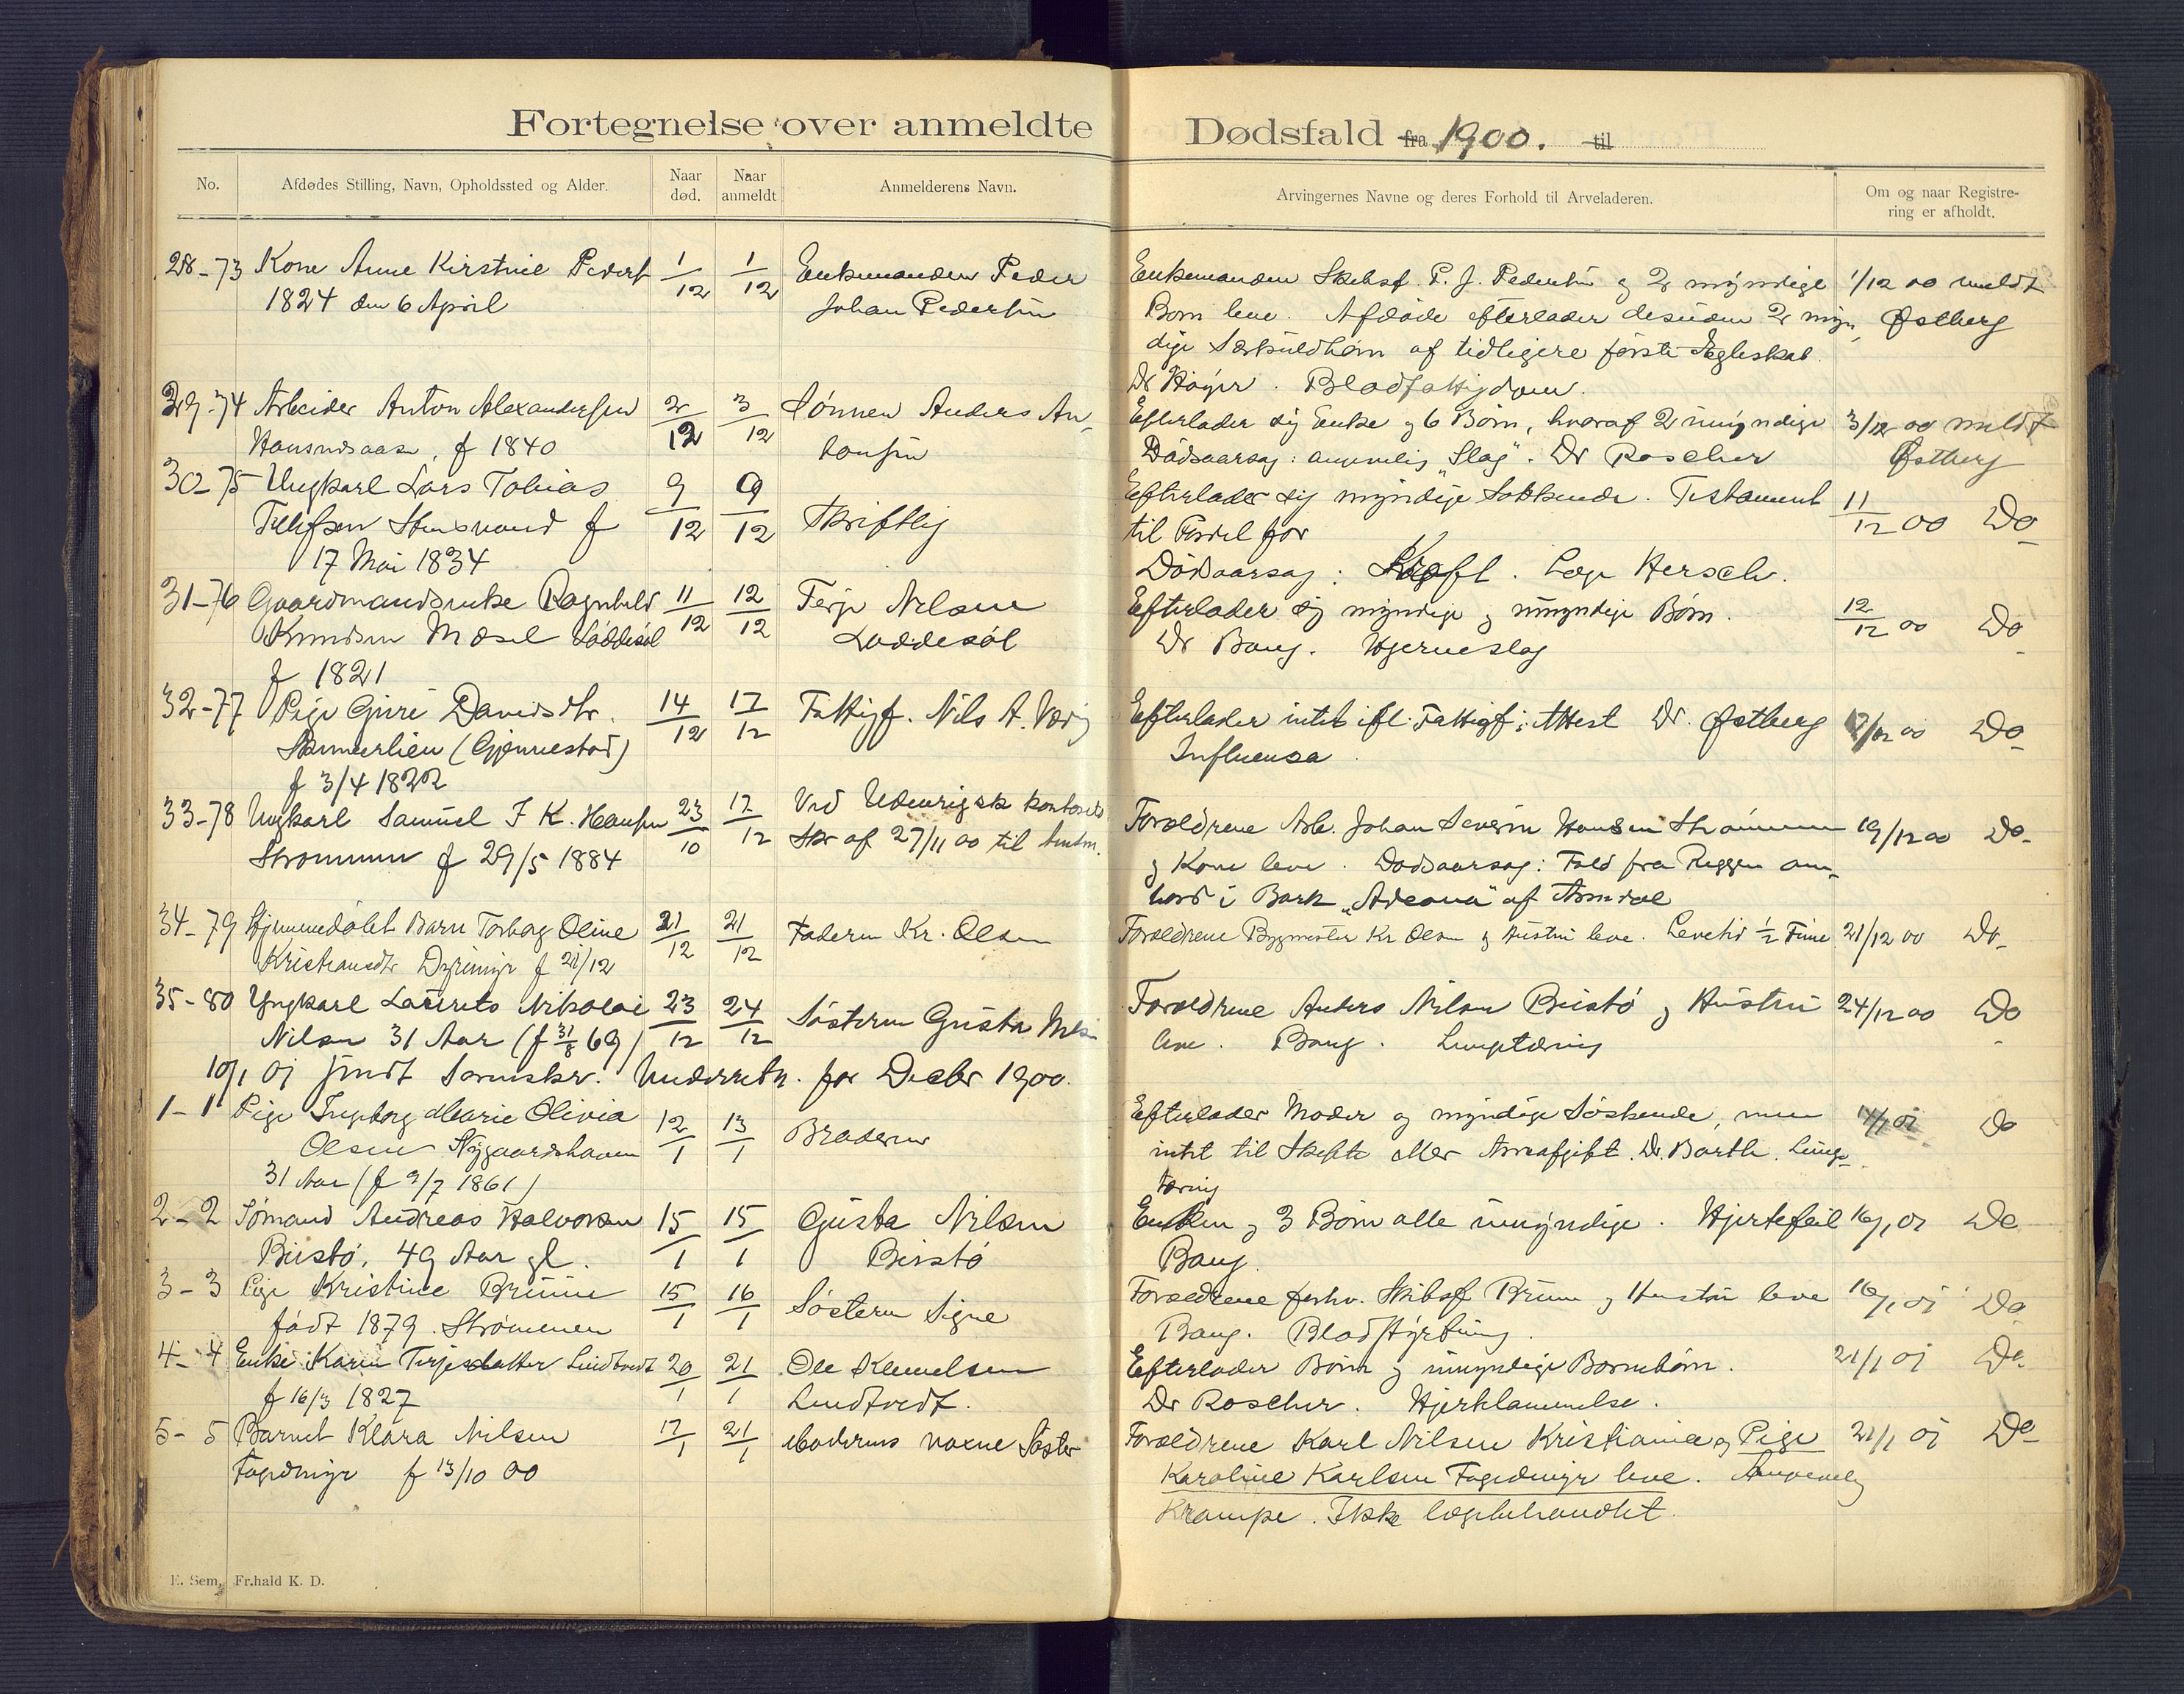 Fortegnelse over anmeldte Dødsfald fra 1900. til
No. Afdødes Stilling, Navn, Opholdssted og Alder. Naar død. Naar anmeldt Anmelderens Navn. Arvingernes Navne og deres Forhold til Arveladeren. Om og naar Registrering er afholdt.
28-73 Kone Anne Kirstine Peders 1/12 1/12 Enkemanden Peder Enkemanden Skibsf. P. J. Pedersen og 2 myndige 1/12 00 meldt
1824 den 6 April Johan Pedersen Børn leve. Afdøde efterlader desuden 2 myn- Østberg
dige Særkuldbørn af tidligere første Ægteskab.
Dr Høyer. Blodfattigdom.
29-74 Arbeider Anton Alexandersen 2/12 3/12 Sønnen Anders An- Efterlader sig Enke og 6 Børn, hvoraf 2 umyndige 3/12 00 meldt
f 1840 tonsen Dødsaarsag: angivelig "Slag". Dr Roscher Østberg
30-75 Ungkarl Lars Tobias 9/12 9/12 Skriftlig Efterlader sig myndige Søskende. Testament 11/12 00 Do
Tellefsen f til Fordel for
17 Mai 1834 Dødsaarsag: Kræft. Læge Hersch.
31-76 Gaardmandsenke Ragnhild 11/12 12/12 Terje Nilsen Efterlader sig myndige og umyndige Børn. 12/12 00 Do
Knudsen Mæsel Løddesøl Løddesøl Dr Bang. Hjerneslag
f 1821
32-77 Pige Guri Davidsdtr. 14/12 17/12 Fattigf. Nils A. Efterlader intet ifl. Fattigf; Attest Dr. Østberg 17/12 00 Do
(Gjennestad) Influensa
f 3/4 1822
33-78 Ungkarl Samuel F K. Hansen 23/10 17/12 Ved Udenrigsk kontorets Forældrene Arb. Johan Severin Hansen Strømmen 19/12 00 Do
Strømmen f 29/5 1884 Skr af 27/11 00 til og Kone leve. Dødsaarsag: Fald fra Riggen om-
bord i Bark "Adeona" af Arendal
34-79 Hjemmedøbt Barn Torborg Oline 21/12 21/12 Faderen Kr. Olsen Forældrene Bygmester Kr Olsen og Hustru leve. Levetid 1/2 Time 21/12 00 Do
Kristiansdtr Dyremyr f 21/12
35-80 Ungkarl Laurits Nikolai 23/12 24/12 Søsteren Gusta Nilsen Forældrene Anders Nilsen Biustø og Hustru 24/12 00 Do
Nilsen 31 Aar (f 31/8 69) leve. Bang. Lungetæring
10/1 01 sendt Sorenskr. Underretn. for Decbr 1900.
1-1 Pige Ingeborg Marie Olivia 12/1 13/1 Broderen Efterlader Moder og myndige Søskende, men 14/1 01 Do
Olsen Nygaardshaven intet til Skifte eller Arveafgift. Dr. Barth. Lunge-
31 Aar (f 9/7 1861) tæring
2-2 Sømand Andreas Halvorsen 15/1 15/1 Gusta Nilsen Enken og 3 Børn alle umyndige. Hjertefeil 16/1 01 Do
Biustø, 49 Aar gl. Biustø Bang.
3-3 Pige Kristine Bruun 15/1 16/1 Søsteren Signe Forældrene forhv. Skibsf Bruun og Hustru leve 16/1 01 Do
født 1879. Strømmen Bang. Blodstyrtning.
4-4 Enke Karen Terjesdatter Lindtvedt 20/1 21/1 Ole Klemetsen Efterlader Børn og umyndige Børnebørn. 21/1 01 Do
f 16/3 1827 Lindtvedt. Dr Roscher. Hjertelammelse.
5-5 Barnet Klara Nilsen 17/1 21/1 Moderens voxne Søster Forældrene Karl Nilsen Kristiania og Pige 21/1 01 Do
Fagedmyr f 13/10 00 Karoline Karlsen Fagedmyr leve. Angivelig
Krampe. Ikke lægebehandlet.
E. Sem, Fr.hald K. D.